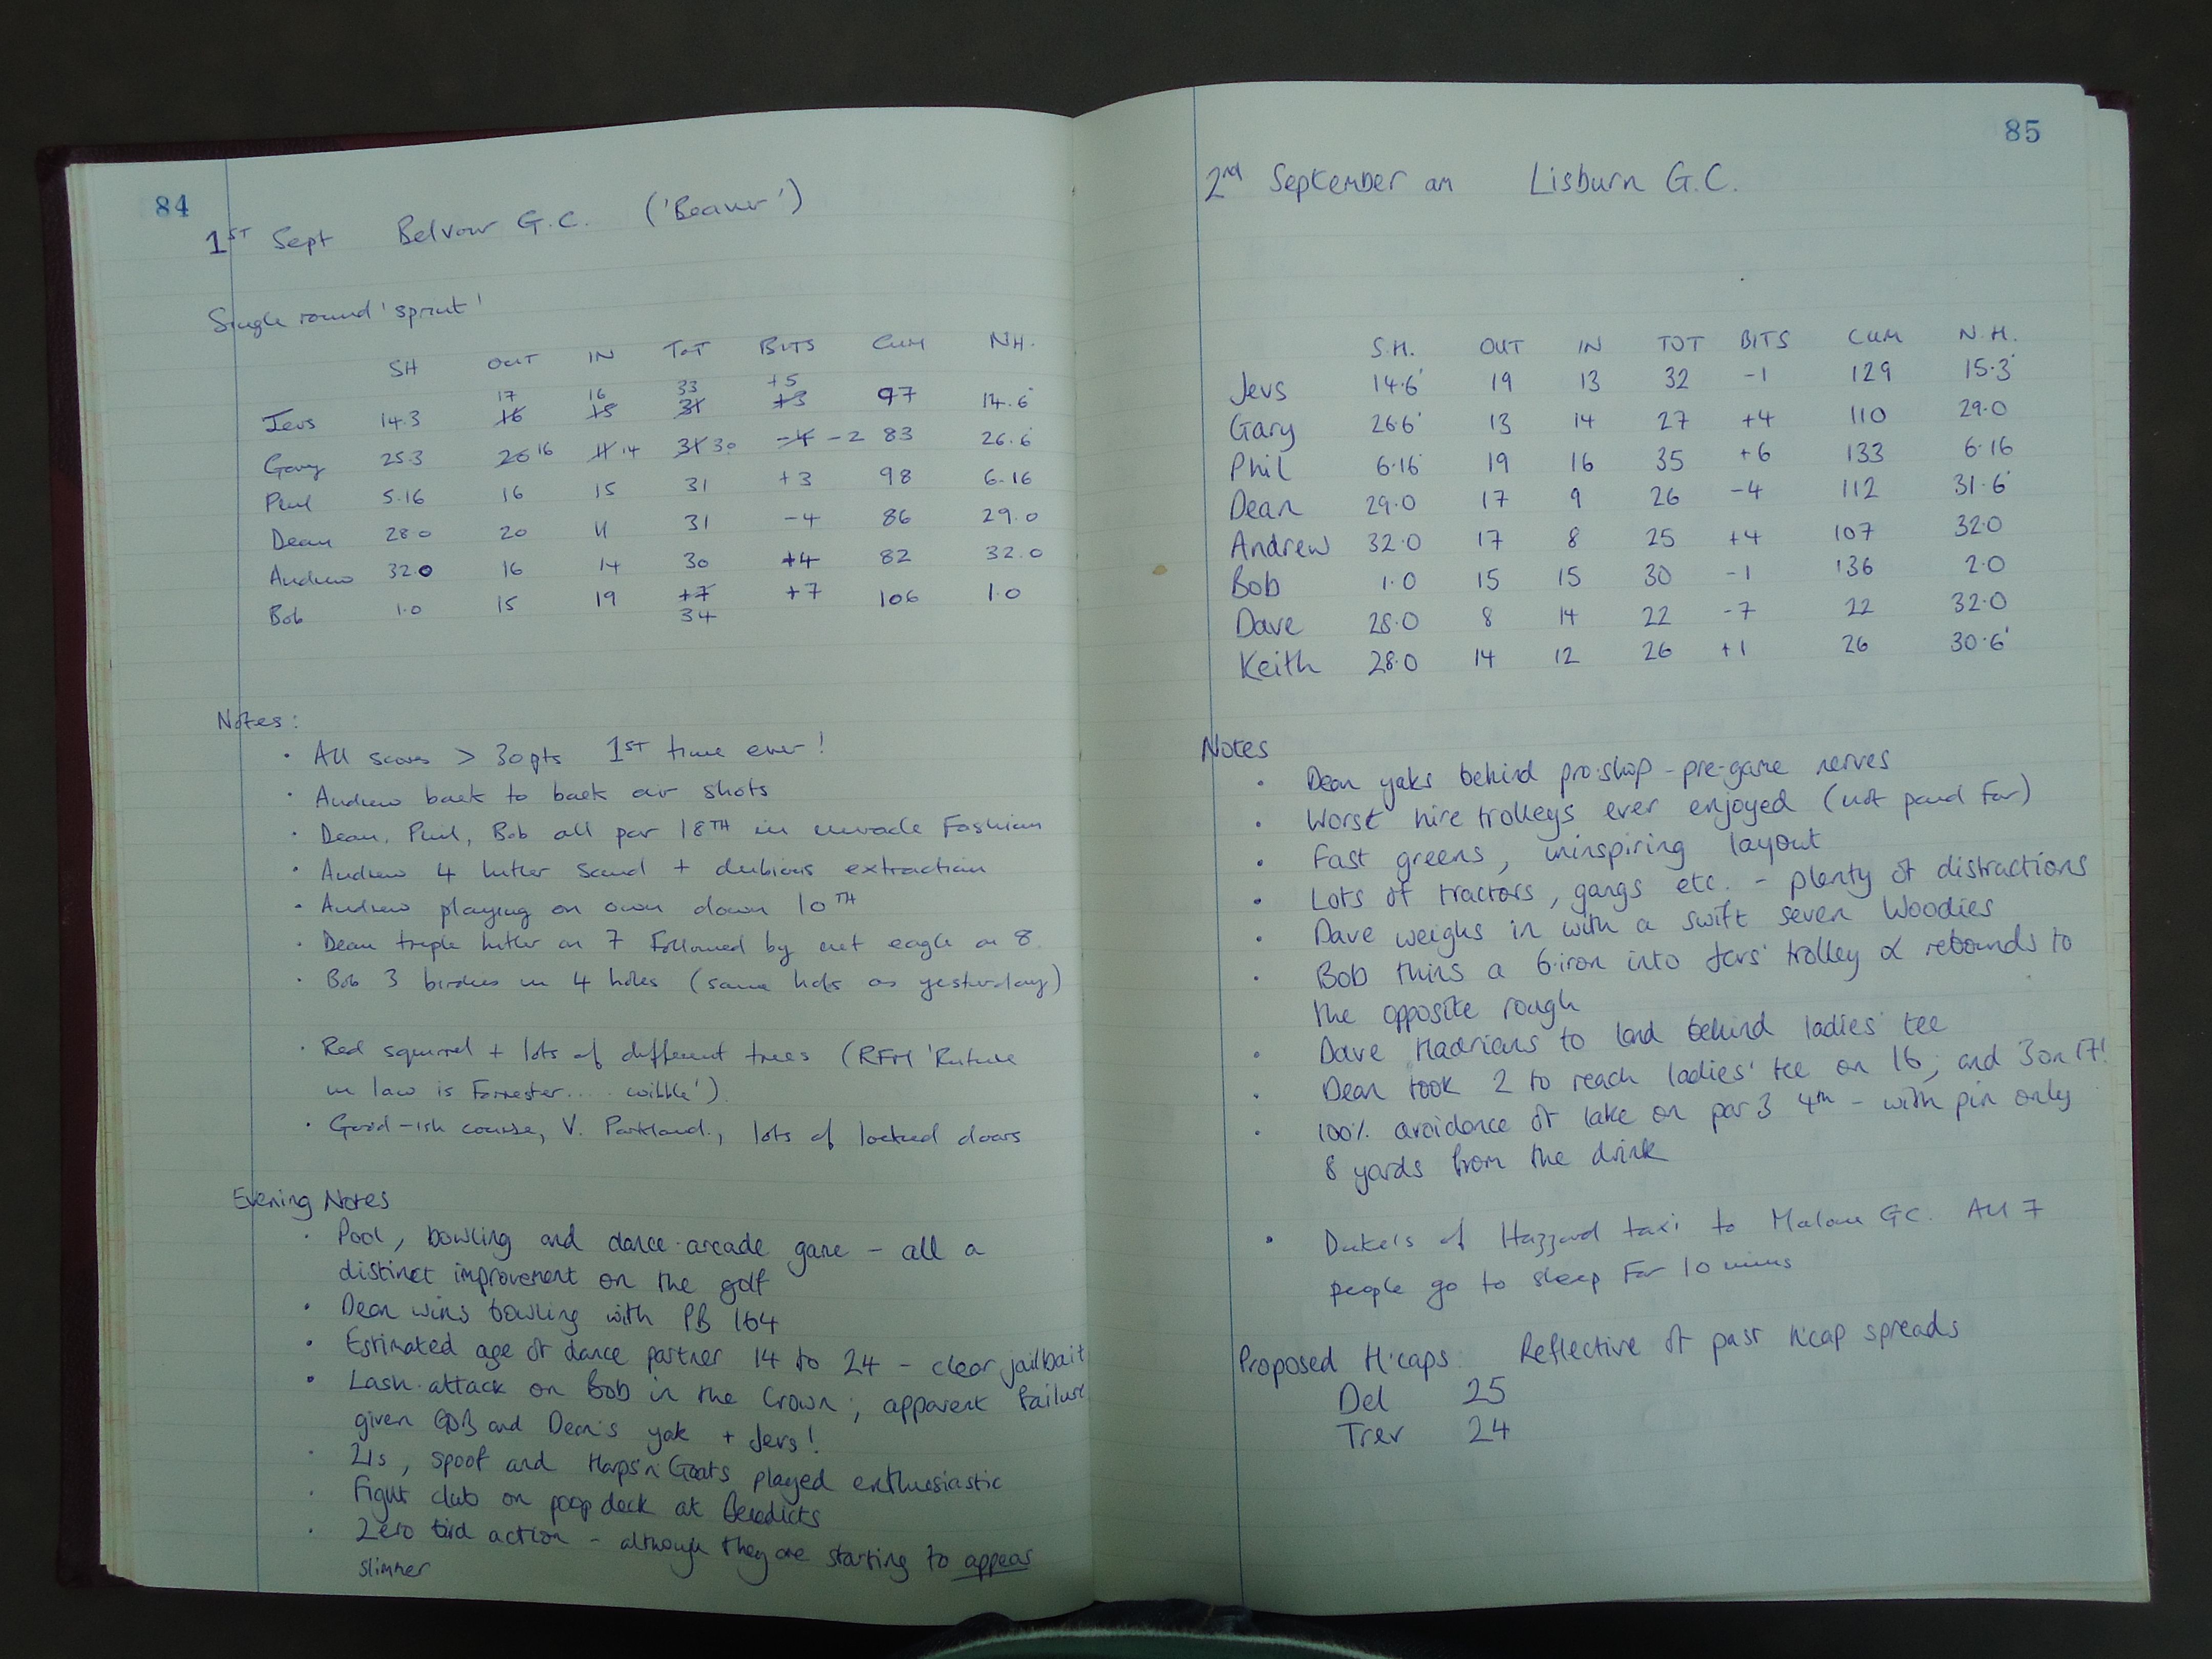 84
1ST Sept Belvoir G.C. ('Beaver')
Single round 'sprint'
SH OUT IN TOT BITS CUM NH.
17 16 33 +5
Jevs 14.3 16 15 31 +3 97 14.6
Gary 25.3 20 16 11 14 31 30 -4 -2 83 26.6
Phil 5.16 16 15 31 +3 98 6.16
Dean 28.0 20 11 31 -4 86 29.0
Andrew 32.0 16 14 30 +4 82 32.0
Bob 1.0 15 19 +7 +7 106 1.0
34
Notes:
· All scores > 30pts 1ST time ever!
· Andrew back to back air shots
· Dean, Phil, Bob all par 18TH in miracle fashion
· Andrew 4 hitler sand + dubious extraction
· Andrew playing on own down 10TH
· Dean triple hitler on 7 followed by net eagle on 8.
· Bob 3 birdies in 4 holes (same hols as yesterday)
· Red squirrel + lots of different trees (RFH 'Future
in law is Forrester.... wibble').
· Good-ish course, V. Parkland., lots of locked doors
Evening Notes
· Pool, bowling and dance-arcade game - all a
distinct improvement on the golf
· Dean wins bowling with PB 164
· Estimated age of dance partner 14 to 24 - clear jailbait
· Lash-attack on Bob in the Crown; apparent failure
given GDB and Dean's yak + Jevs!
· 21s, spoof and Harps'n'Goats played enthusiastic
· Fight club on poop deck at Benedicts
· Zero bird action - although they are starting to appear
slimmer
85
2nd September am Lisburn G.C.
S.H. OUT IN TOT BITS CUM N.H.
Jevs 14.6 19 13 32 -1 129 15.3
Gary 26.6 13 14 27 +4 110 29.0
Phil 6.16 19 16 35 +6 133 6.16
Dean 29.0 17 9 26 -4 112 31.6
Andrew 32.0 17 8 25 +4 107 32.0
Bob 1.0 15 15 30 -1 136 2.0
Dave 28.0 8 14 22 -7 22 32.0
Keith 28.0 14 12 26 +1 26 30.6
Notes
· Dean yaks behind pro-shop - pre-game nerves
· Worst hire trolleys ever enjoyed (not paid for)
· Fast greens, uninspiring layout
· Lots of tractors, gangs etc. - plenty of distractions
· Dave weighs in with a swift seven Woodies
· Bob thins a 6-iron into Jevs' trolley & rebounds to
the opposite rough
· Dave Hadrians to land behind ladies' tee
· Dean took 2 to reach ladies' tee on 16, and 3 on 17!
· 100% avoidance of lake on par 3 4th - with pin only
8 yards from the drink
· Duke's of Hazzard taxi to Malone GC. All 7
people go to sleep for 10 mins
Proposed H'caps: Reflective of past h'cap spreads
Del 25
Trev 24